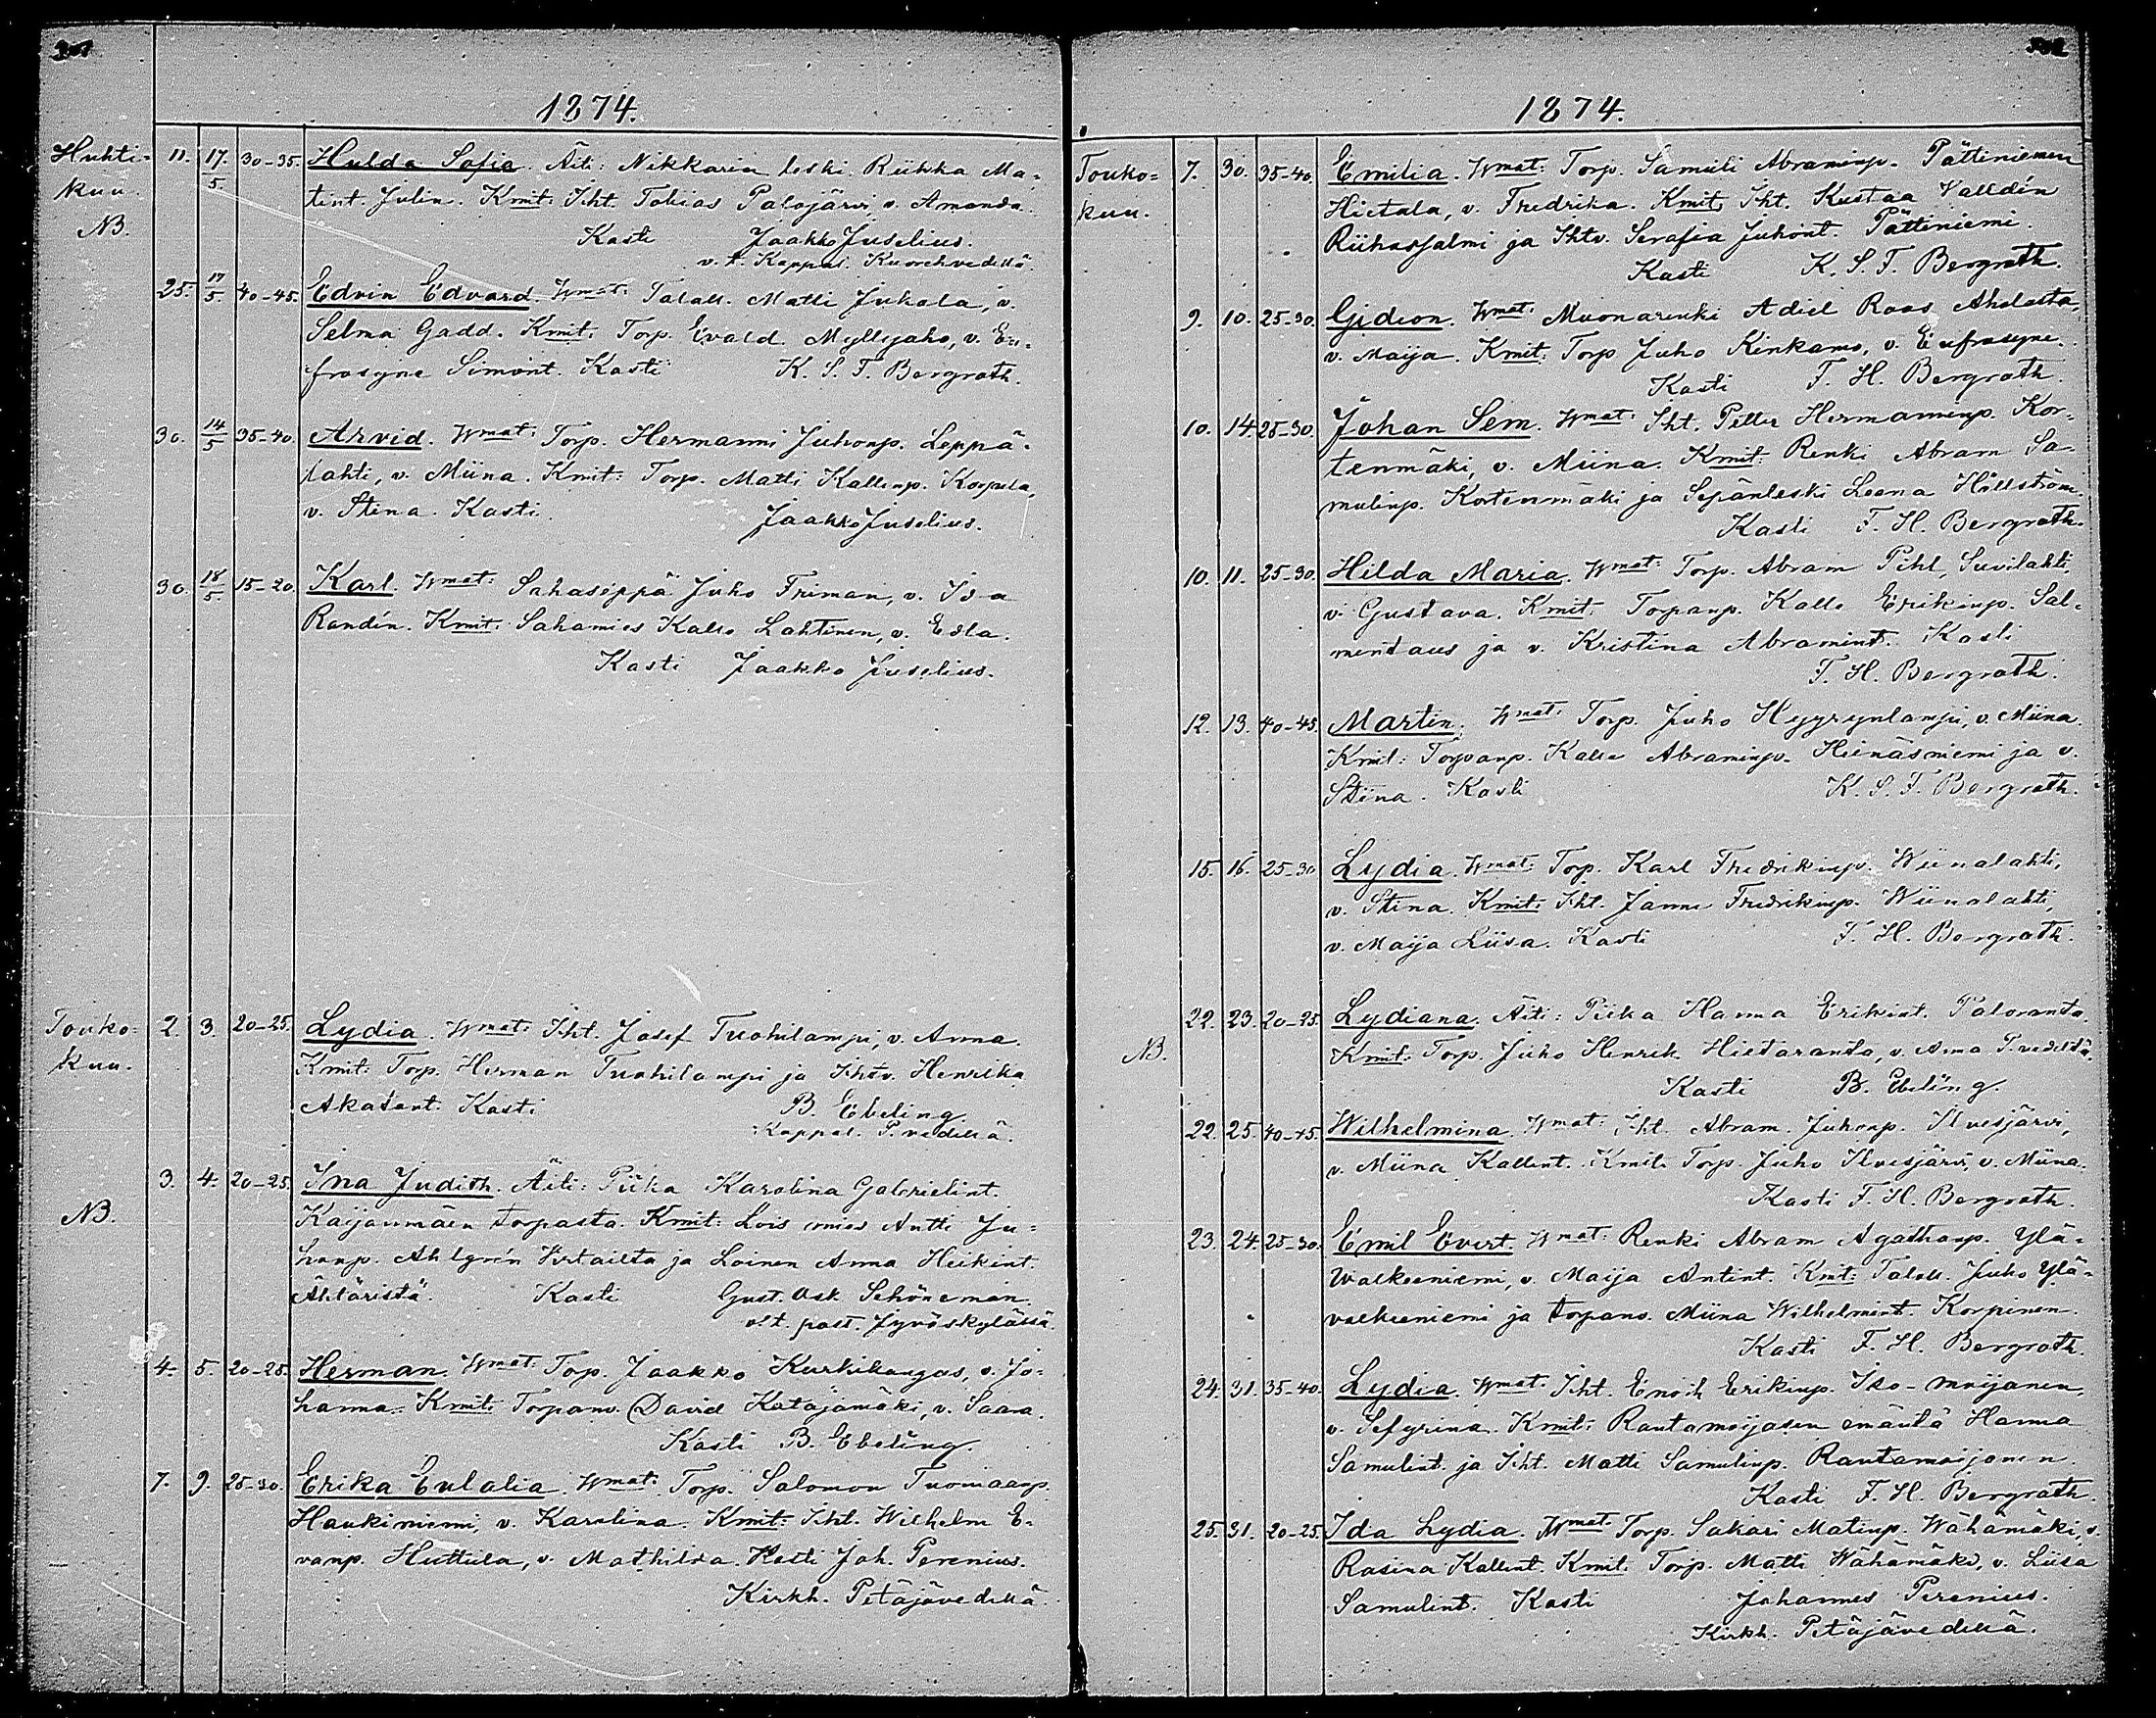 301
1874.
Huhti-
kuu.
NB.
11. 17/5 30-35. Hulda Sofia. Äiti: Nikkarin leski Riikka Ma-
tint. Julin. Kmit: Iht. Tobias Palojärvi, v. Amanda.
Kasti Jaakko Juselius.
v. t. Kappal. Kuorehvedellä.
25. 17/5 40-45. Edvin Edvard. Wmat: Talall. Matti Jukola, v.
Selma Gadd. Kmit: Torp. Evald Myllyaho, v. Eu-
frosyne Simont. Kasti K. S. F. Bergroth.
30. 14/5 35-40. Arvid. Wmat: Torp. Hermanni Juhonp. Leppä-
lahti, v. Miina. Kmit: Torp. Matti Kallenp. Korpela,
v. Stina. Kasti Jaakko Juselius.
30. 18/5 15-20. Karl. Wmat: Sahaseppä Juho Friman, v. Ida
Randén. Kmit: Sahamies Kalle Lahtinen, v. Edla.
Kasti Jaakko Juselius.
Touko-
kuu.
2. 3. 20-25. Lydia. Wmat: Iht. Josef Tuohilampi, v. Anna.
Kmit: Torp. Herman Tuohilampi ja Ihtv. Henrika
Akatant. Kasti B. Ebeling
Kappal. P.vedellä.
NB.
3. 4. 20-25. Ina Judith. Äiti: Piika Karolina Gabrielint.
Kaijanmäen torpasta. Kmit: Lois mies Antti Ju-
honp. Ahlgrén Virtailta ja Loinen Anna Heikint.
Ähtäristä. Kasti Gust. Osk. Schöneman
v. t. past. Jyväskylässä.
4. 5. 20-25. Herman. Wmat: Torp. Jaakko Kurkikangas, v. Jo-
hanna. Kmit: Torpanv. David Katajamäki, v. Saara.
Kasti B. Ebeling.
7. 9. 25-30. Erika Eulalia. Wmat: Torp. Salomon Tuomaanp.
Haukiniemi, v. Karolina. Kmit: Iht. Wilhelm E-
vanp. Huttula, v. Mathilda. Kasti Joh. Perenius.
Kirkh. Petäjävedellä.
302
1874.
Touko-
kuu.
7. 30. 35-40. Emilia. Wmat: Torp. Samuli Abraminp. Pättiniemen
Hietala, v. Fredrika. Kmit: Iht. Kustaa Walldén
Riihassalmi ja Ihtv. Serafia Juhont. Pättiniemi.
Kasti K. S. F. Bergroth.
9. 10. 25-30. Gideon. Wmat: Muonarenki Adiel Roos Aholasta,
v. Maija. Kmit: Torp. Juho Kinkamo, v. Eufrosyne.
Kasti F. H. Bergroth.
10. 14. 25-30. Johan Sem. Wmat: Iht. Petter Hermanninp. Kor-
tenmäki, v. Miina. Kmit: Renki Abram Sa-
mulinp. Kortenmäki ja Sepänleski Leena Hällström.
Kasti F. H. Bergroth.
10. 11. 25-30. Hilda Maria. Wmat: Torp. Abram Pihl, Suvilahti,
v. Gustava. Kmit: Torpanp. Kalle Erikinp. Sal-
mentaus ja v. Kristina Abramint. Kasti
F. H. Bergroth.
12. 13. 40-45. Martin. Wmat: Torp. Juho Hyyrynlampi, v. Miina.
Kmit: Torpanp. Kalle Abraminp. Heinäsniemi ja v.
Stina. Kasti K. S. F. Bergroth.
15. 16. 25-30 Lydia. Wmat: Torp. Karl Fredrikinp. Wiinalahti,
v. Stina. Kmit: Iht. Janne Fredrikinp. Wiinalahti,
v. Maija Liisa. Kasti F. H. Bergroth.
NB.
22. 23. 20-25. Lydiana. Äiti: Piika Hanna Erikint. Paloranta.
Kmit: Torp. Juho Henrik Hietaranta, v. Anna P.vedeltä.
Kasti B. Ebeling.
22. 25. 40-45. Wilhelmina. Wmat: Iht. Abram Juhonp. Ilvesjärvi,
v. Miina Kallent. Kmit: Torp. Juho Ilvesjärvi, v. Miina.
Kasti F. H. Bergroth.
23. 24. 25-30. Emil Evert. Wmat: Renki Abram Agathonp. Ylä-
walkeeniemi, v. Maija Antint. Kmit: Talall. Juho Ylä-
valkeeniemi ja torpanv. Miina Wilhelmint. Korpinen.
Kasti F. H. Bergroth.
24. 31. 35-40. Lydia. Wmat: Iht. Enoch Erikinp. Iso-moijanen,
v. Sefyrina. Kmit: Rautamoijasen emäntä Hanna
Samulint. ja Iht. Matti Samulinp. Rautamoijonen.
Kasti F. H. Bergroth.
25. 31. 20-25. Ida Lydia. Wmat: Torp. Sakari Matinp. Wähämäki, v.
Rosina Kallent. Kmit: Torp. Matti Wähämäki, v. Liisa
Samulint. Kasti Johannes Perenius.
Kirkh. Petäjävedellä.